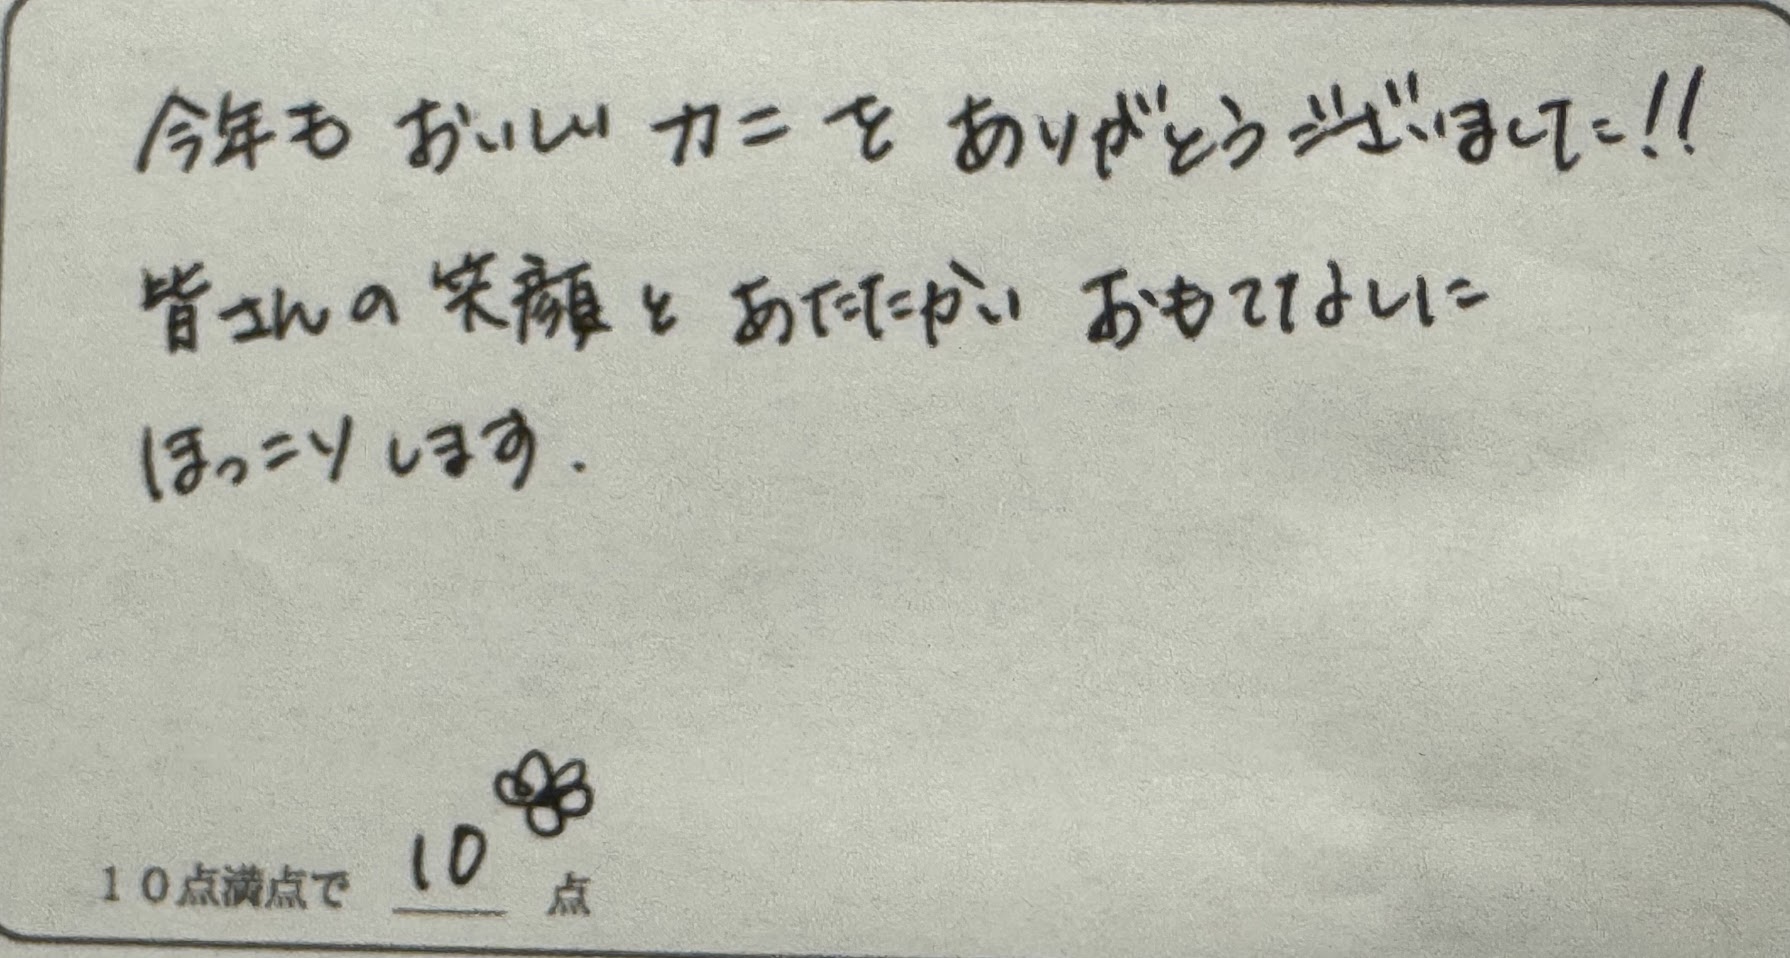 今年もおいしいカニをありがとうございました!!
皆さんの笑顔とあたたかいおもてなしに
ほっこりします.
10点満点で 10 点